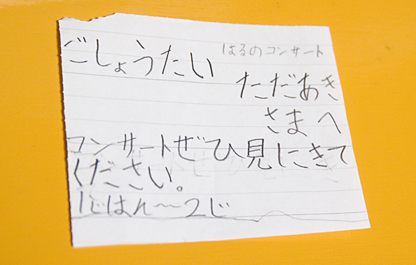 はるのコンサート
ごしょうたい
ただあき
さまへ
コンサートぜひ見にきて
ください。
1じはん〜2じ